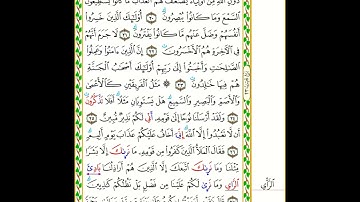 دُونِ ٱللَّهِ مِنْ أَوْلِيَآءَ يُضَٰعَفُ لَهُمُ ٱلْعَذَابُ مَا كَانُوا۟ يَسْتَطِيعُونَ
ٱلسَّمْعَ وَمَا كَانُوا۟ يُبْصِرُونَ ٢٠ أُو۟لَٰٓئِكَ ٱلَّذِينَ خَسِرُوٓا۟
أَنفُسَهُمْ وَضَلَّ عَنْهُم مَّا كَانُوا۟ يَفْتَرُونَ ٢١ لَا جَرَمَ أَنَّهُمْ
فِى ٱلْءَاخِرَةِ هُمُ ٱلْأَخْسَرُونَ ٢٢ إِنَّ ٱلَّذِينَ ءَامَنُوا۟ وَعَمِلُوا۟
ٱلصَّٰلِحَٰتِ وَأَخْبَتُوٓا۟ إِلَىٰ رَبِّهِمْ أُو۟لَٰٓئِكَ أَصْحَٰبُ ٱلْجَنَّةِ
هُمْ فِيهَا خَٰلِدُونَ ٢٣ مَثَلُ ٱلْفَرِيقَيْنِ كَٱلْأَعْمَىٰ
وَٱلْأَصَمِّ وَٱلْبَصِيرِ وَٱلسَّمِيعِ هَلْ يَسْتَوِيَانِ مَثَلًا أَفَلَا تَذَكَّرُونَ
٢٤ وَلَقَدْ أَرْسَلْنَا نُوحًا إِلَىٰ قَوْمِهِۦٓ إِنِّى لَكُمْ نَذِيرٌ مُّبِينٌ ٢٥
أَن لَّا تَعْبُدُوٓا۟ إِلَّا ٱللَّهَ إِنِّىٓ أَخَافُ عَلَيْكُمْ عَذَابَ يَوْمٍ أَلِيمٍ ٢٦
فَقَالَ ٱلْمَلَأُ ٱلَّذِينَ كَفَرُوا۟ مِن قَوْمِهِۦ مَا نَرَىٰكَ إِلَّا بَشَرًا
مِّثْلَنَا وَمَا نَرَىٰكَ ٱتَّبَعَكَ إِلَّا ٱلَّذِينَ هُمْ أَرَاذِلُنَا بَادِئَ
ٱلرَّأْىِ وَمَا نَرَىٰ لَكُمْ عَلَيْنَا مِن فَضْلٍۭ بَلْ نَظُنُّكُمْ كَٰذِبِينَ ٢٧
ٱلرَّأْىِ